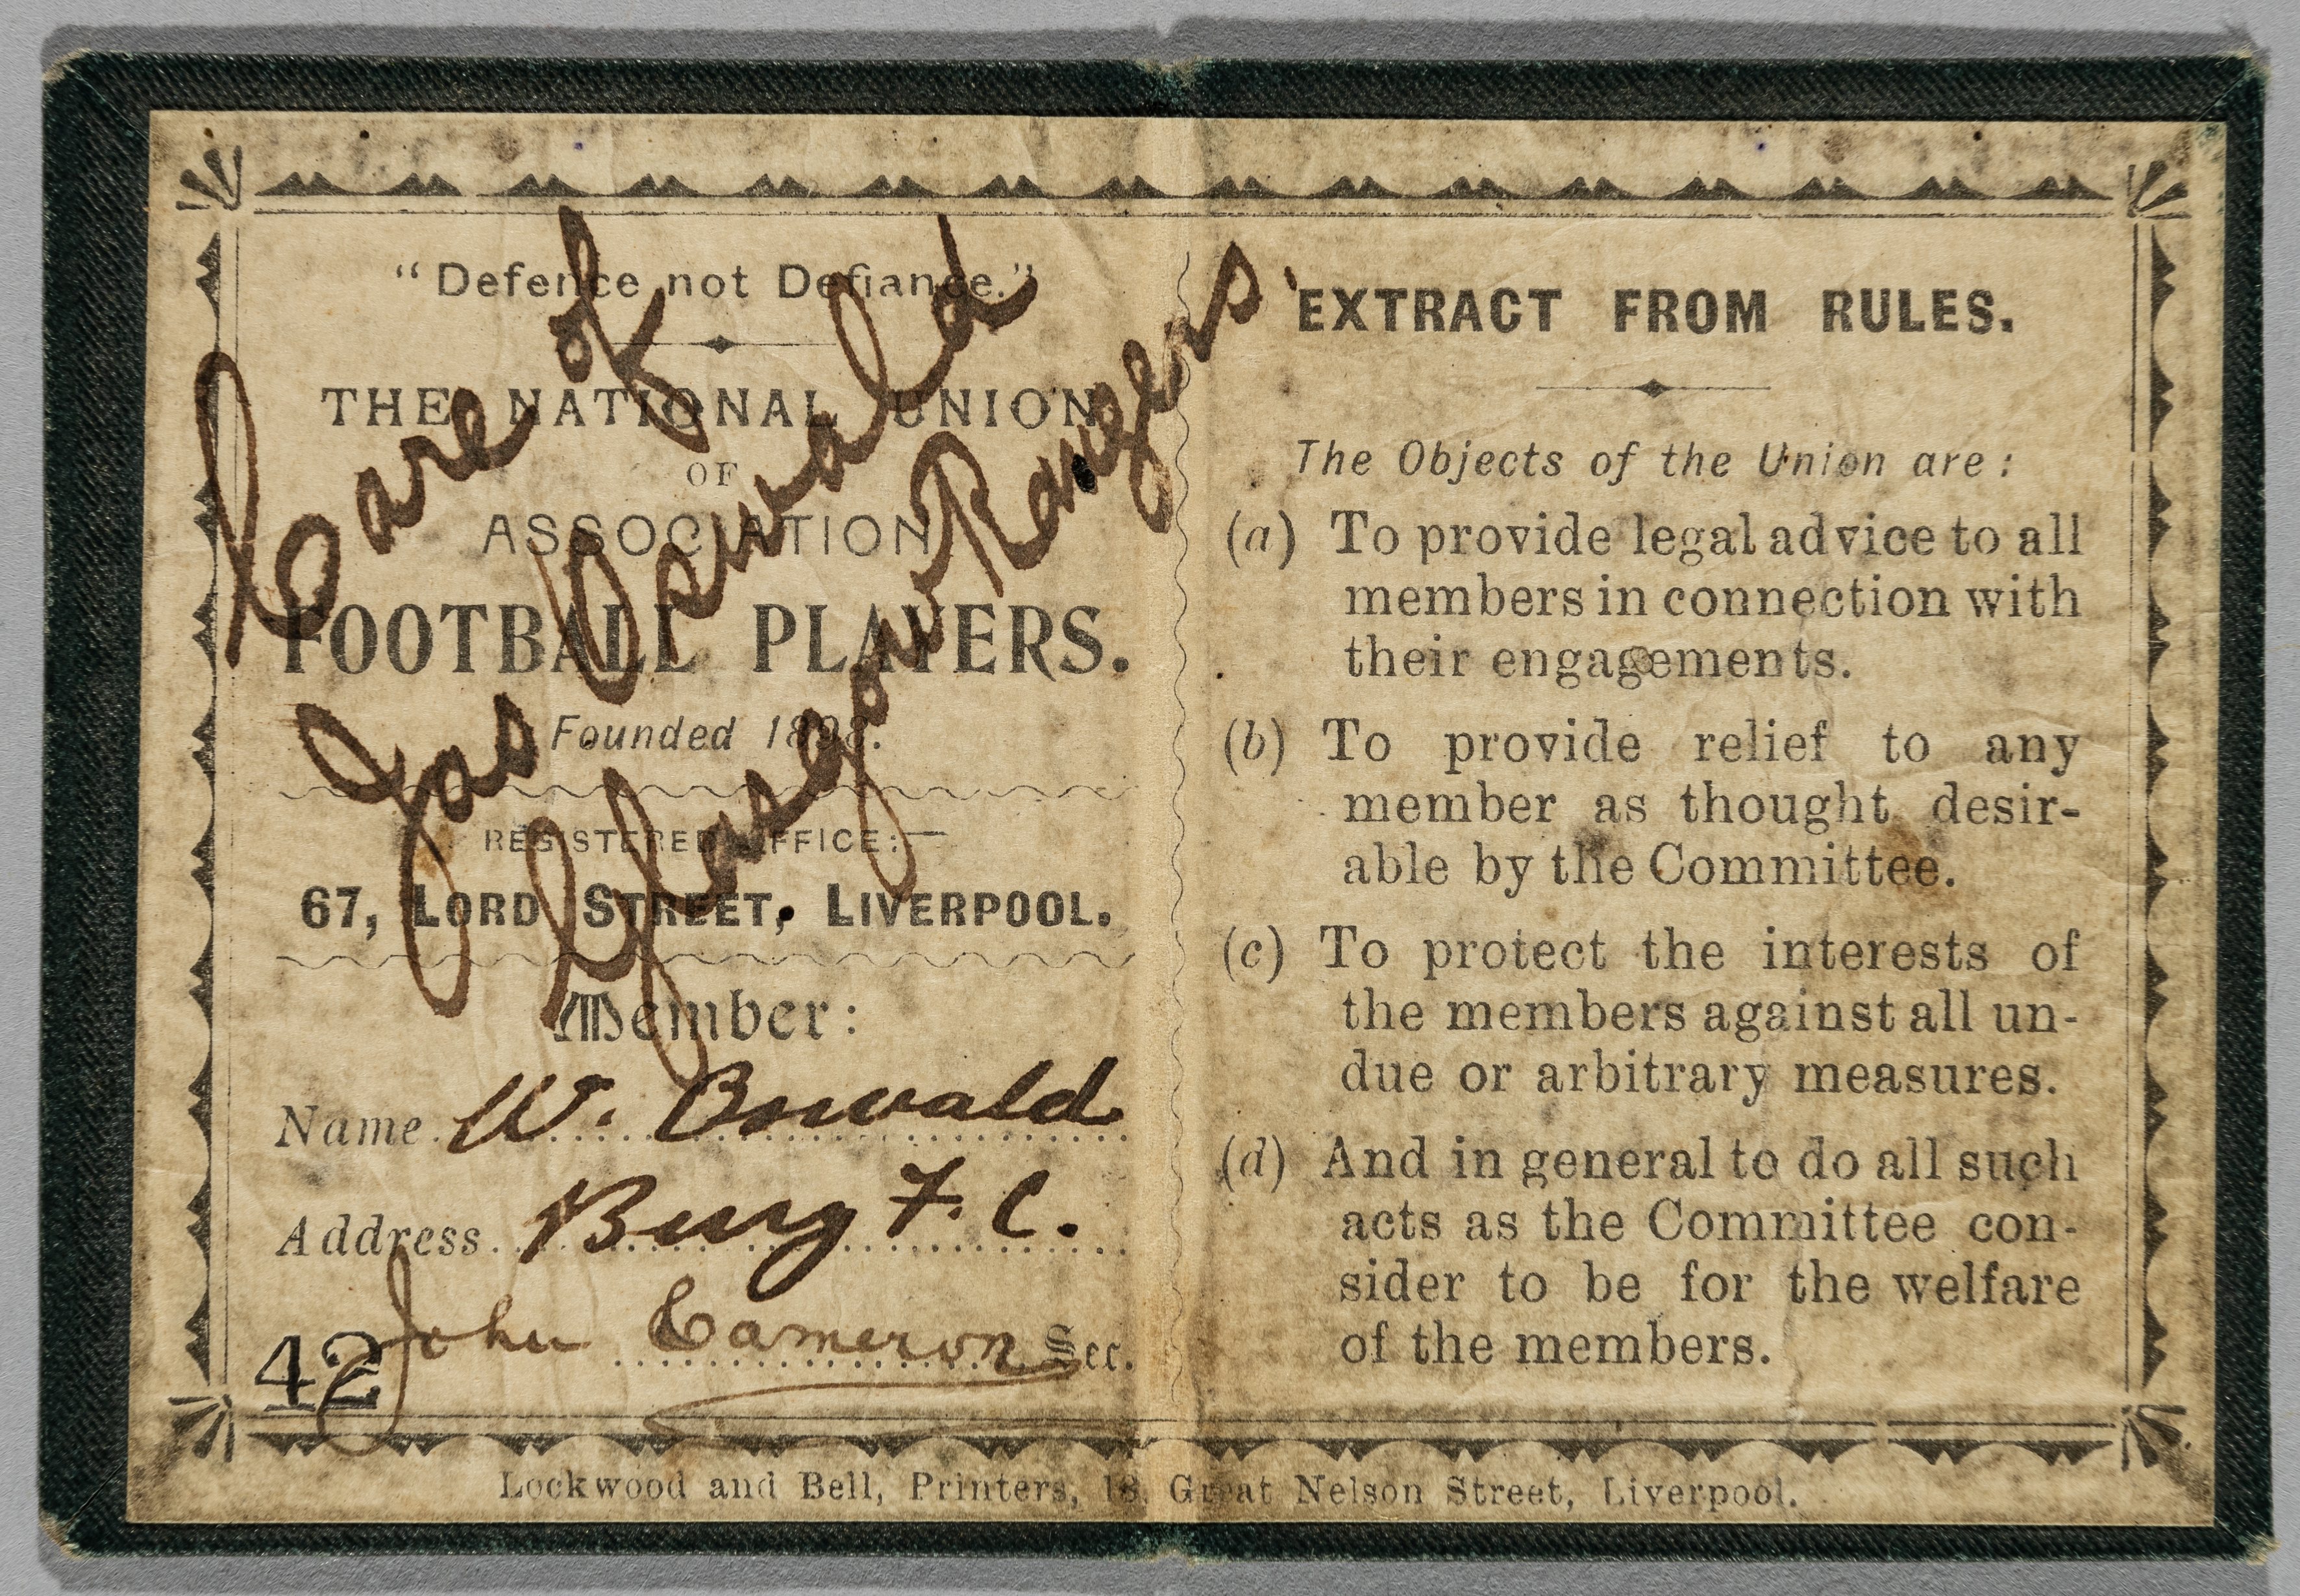 "Defence not Defiance."
THE NATIONAL UNION
OF
ASSOCIATION
FOOTBALL PLAYERS.
Founded 1898.
REGISTERED OFFICE:—
67, LORD STREET, LIVERPOOL.
Member:
Name W. Oswald
Address Bury F. C.
42 John Cameron Sec.
Care of
Jas Oswald
Glasgow Rangers
EXTRACT FROM RULES.
The Objects of the Union are:
(a) To provide legal advice to all
members in connection with
their engagements.
(b) To provide relief to any
member as thought desir-
able by the Committee.
(c) To protect the interests of
the members against all un-
due or arbitrary measures.
(d) And in general to do all such
acts as the Committee con-
sider to be for the welfare
of the members.
Lockwood and Bell, Printers, 18, Great Nelson Street, Liverpool.